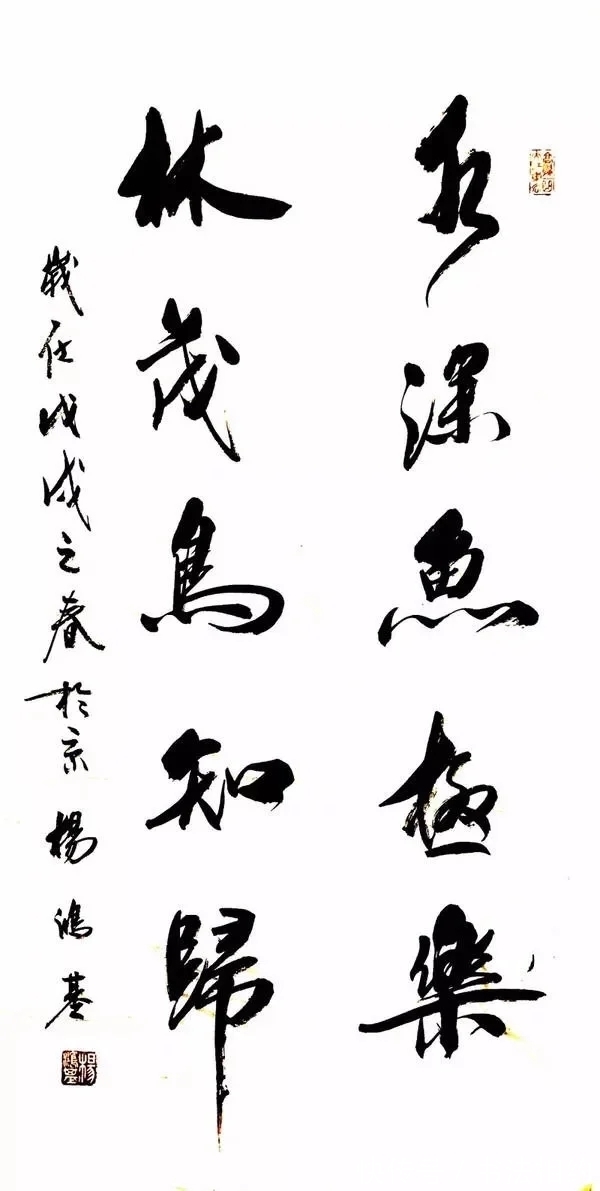 水深魚極樂
林茂鳥知歸
歲在戊戌之春於京 楊鴻基